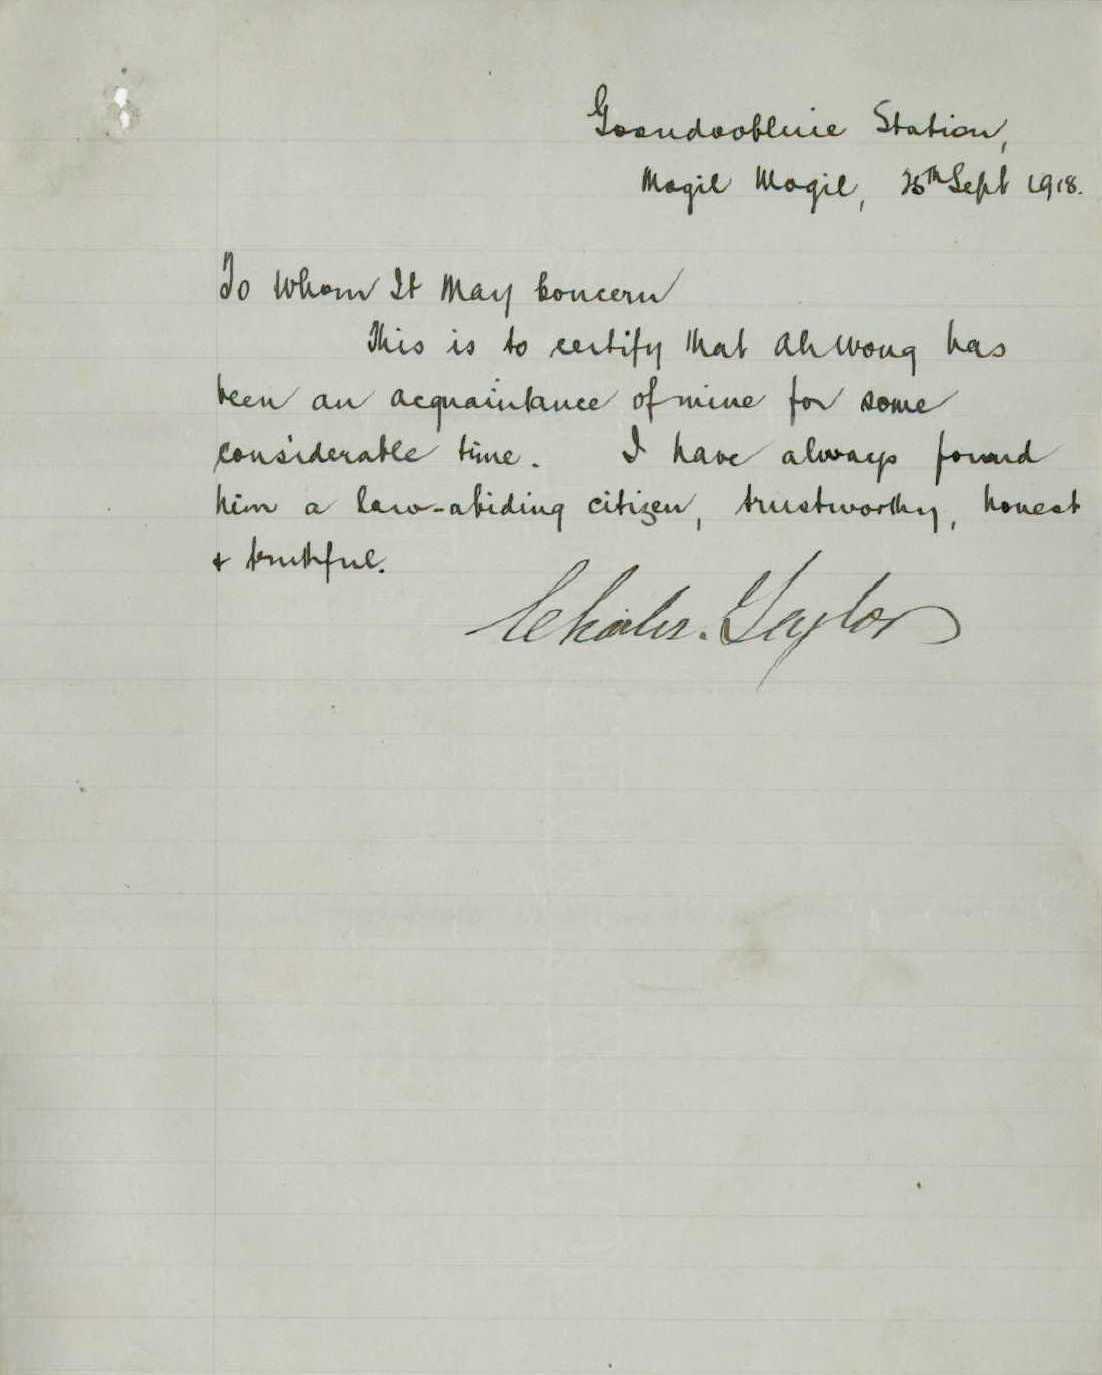 Goondoobluie Station,
Mogil Mogil, 25th Sept 1918.
To Whom It May Concern
This is to certify that Ah Wong has
been an acquaintance of mine for some
considerable time. I have always found
him a law-abiding citizen, trustworthy, honest
& truthful.
Charles. Taylor